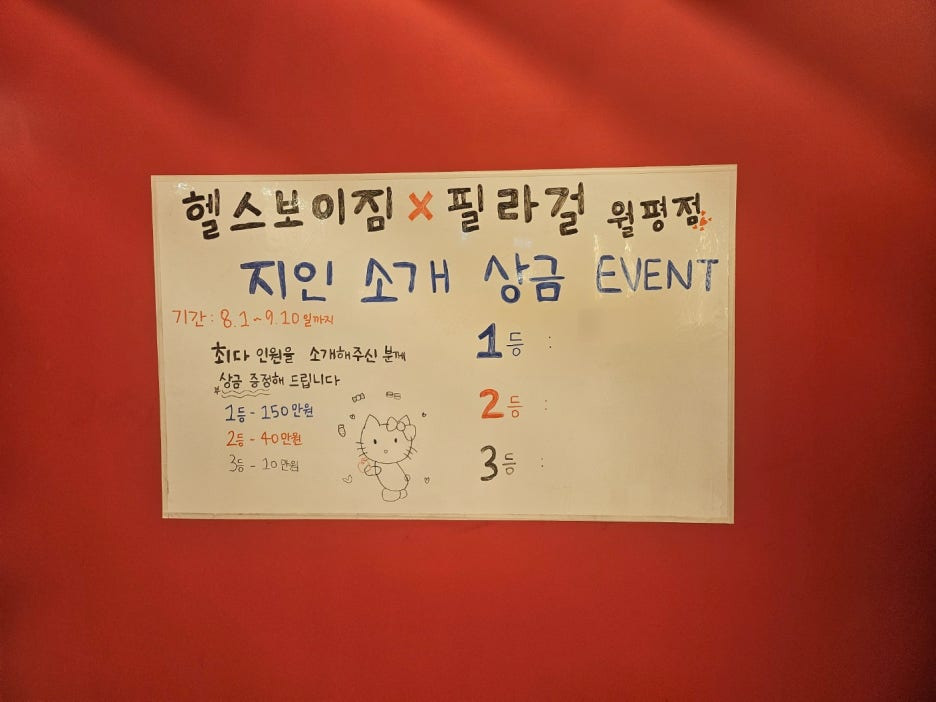 헬스보이짐 X 필라걸 월평점
지인 소개 상금 EVENT
기간 : 8.1 ~ 9.10일까지
최다 인원을 소개해주신 분께
상금 증정해 드립니다
1등 - 150만원
2등 - 40만원
3등 - 10만원
1등 :
2등 :
3등 :